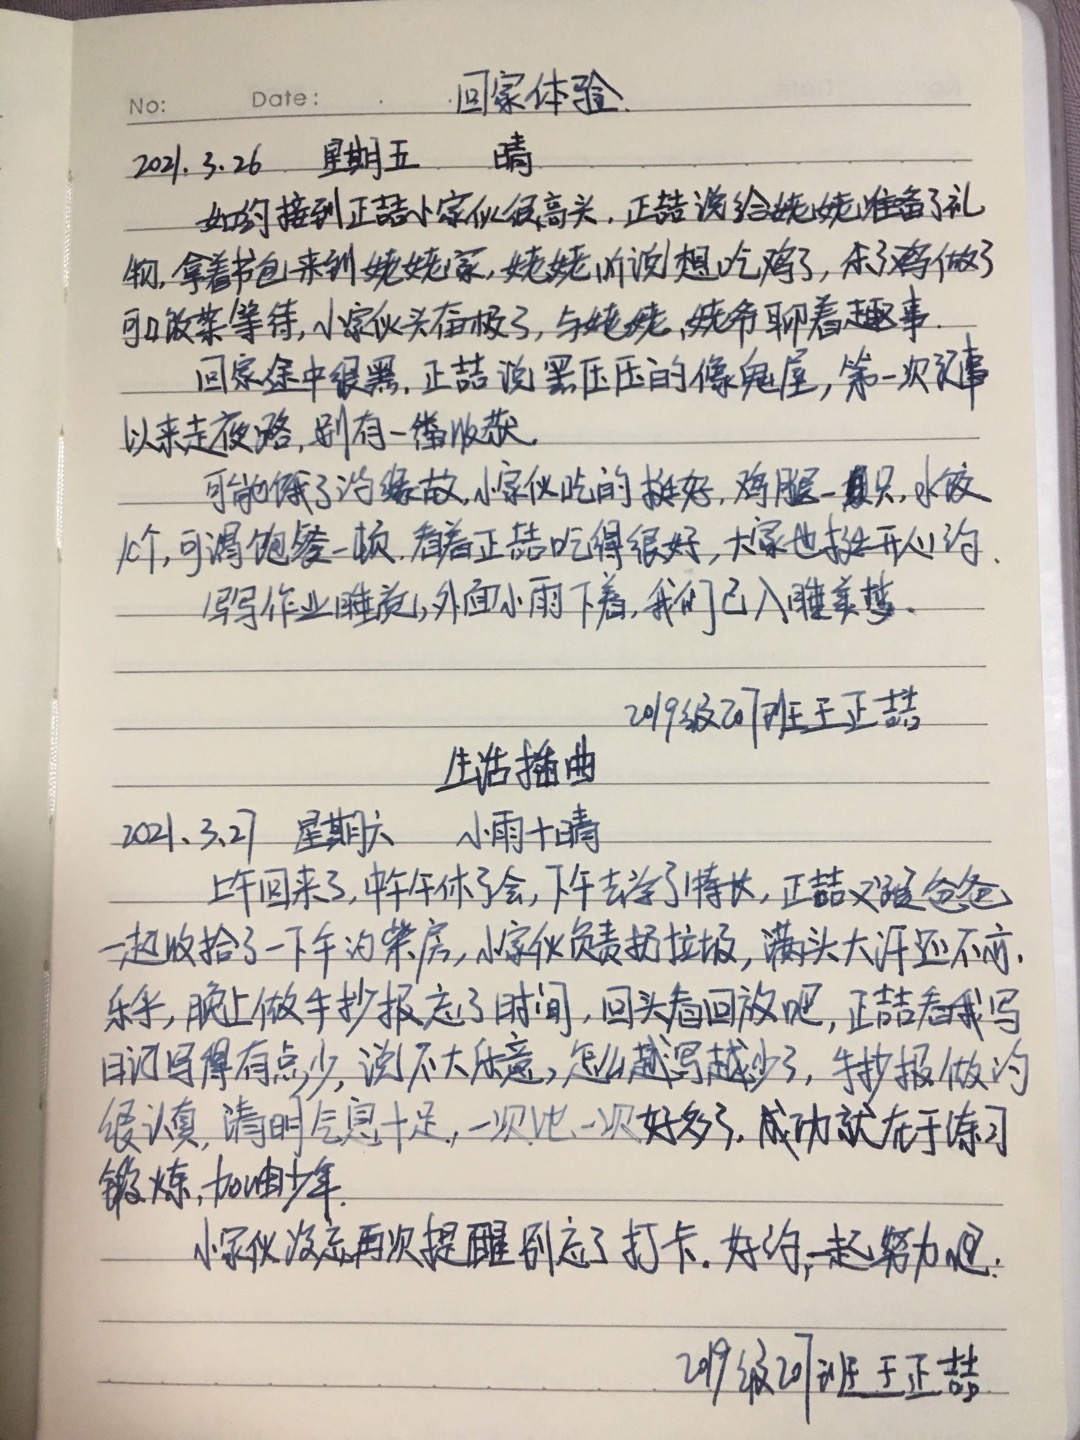 No: Date: 回家体验
2021.3.26 星期五 晴
如约接到正喆小家伙很高兴,正喆说给姥姥准备了礼
物,拿着书包来到姥姥家,姥姥听说想吃鸡了,炖了鸡做了
可口饭菜等待,小家伙头奋极了,与姥姥、姥爷聊着趣事.
回家途中很黑,正喆说黑压压的像鬼屋,第一次记事
以来走夜路,别有一番收获.
可能饿了的缘故,小家伙吃的挺好,鸡腿一只,水饺
个,可谓饱餐一顿.看着正喆吃得很好,大家也挺开心的.
写写作业睡觉,外面小雨下着,我们已入睡美梦.
2019级207班王正喆
生活插曲
2021.3.27 星期六 小雨十晴
上午回来了,中午午休了会,下午去学了特长,正喆又跟爸爸
一起收拾了一下午的菜房,小家伙负责扔垃圾,满头大汗还不亦
乐乎,晚上做手抄报忘了时间,回头看回放吧,正喆看我写
日记写得有点少,说不大乐意,怎么越写越少了,手抄报做的
很认真,清明气息十足,一次比一次好多了,成功就在于练习
锻炼,加油少年.
小家伙没忘再次提醒别忘了打卡.好的,一起努力吧.
2019级207班王正喆